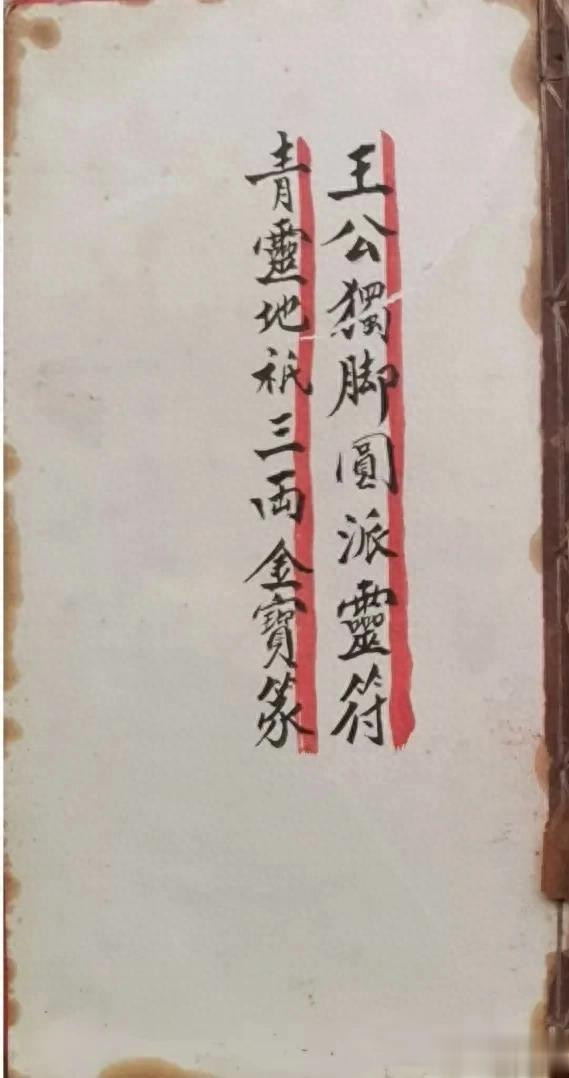 王公獨脚圓派靈符
青靈地祇三両金寶篆